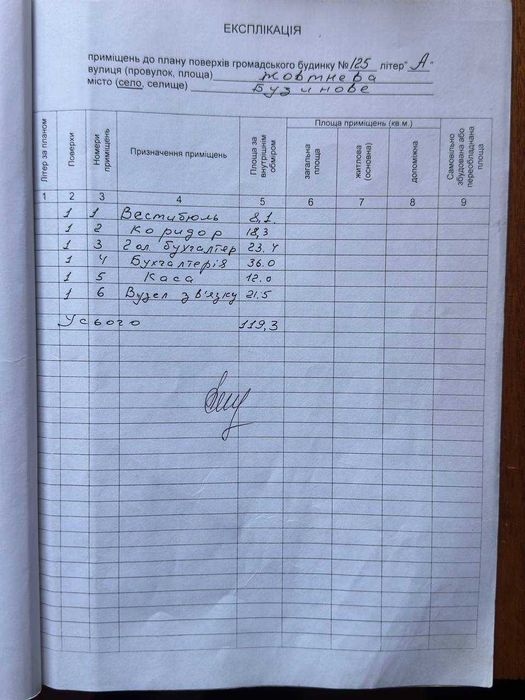 ЕКСПЛІКАЦІЯ
приміщень до плану поверхів громадського будинку № 125 літер" А "
вулиця (провулок, площа) Жовтнева
місто (село, селище) Бузинове
Літер за планом
Поверхи
Номери приміщень
Призначення приміщень
Площа за внутрішнім обміром
Площа приміщень (кв.м.)
загальна площа
житлова (основна)
допоміжна
Самовільно збудована або переобладнана площа
1 2 3 4 5 6 7 8 9
1 1 Вестибюль 8,1
1 2 Коридор 18,3
1 3 Гол. бухгалтер 23.4
1 4 Бухгалтерія 36.0
1 5 Каса 12.0
1 6 Вузел зв'язку 21.5
Усього 119,3